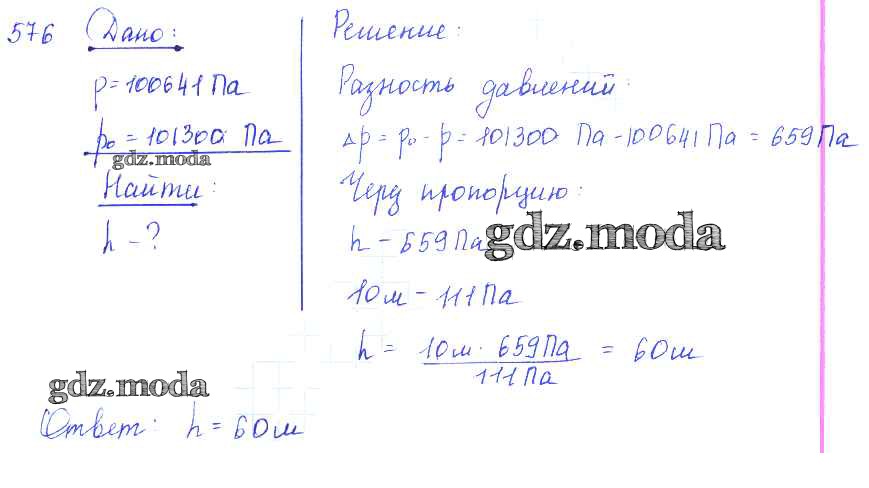 576 Дано:
p = 100641 Па
p₀ = 101300 Па
gdz.moda
Найти:
h - ?
Решение:
Разность давлений:
Δp = p₀ - p = 101300 Па - 100641 Па = 659 Па
Через пропорцию:
h - 659 Па
gdz.moda
10м - 111 Па
h = 10м · 659 Па / 111 Па = 60м
gdz.moda
Ответ: h = 60м